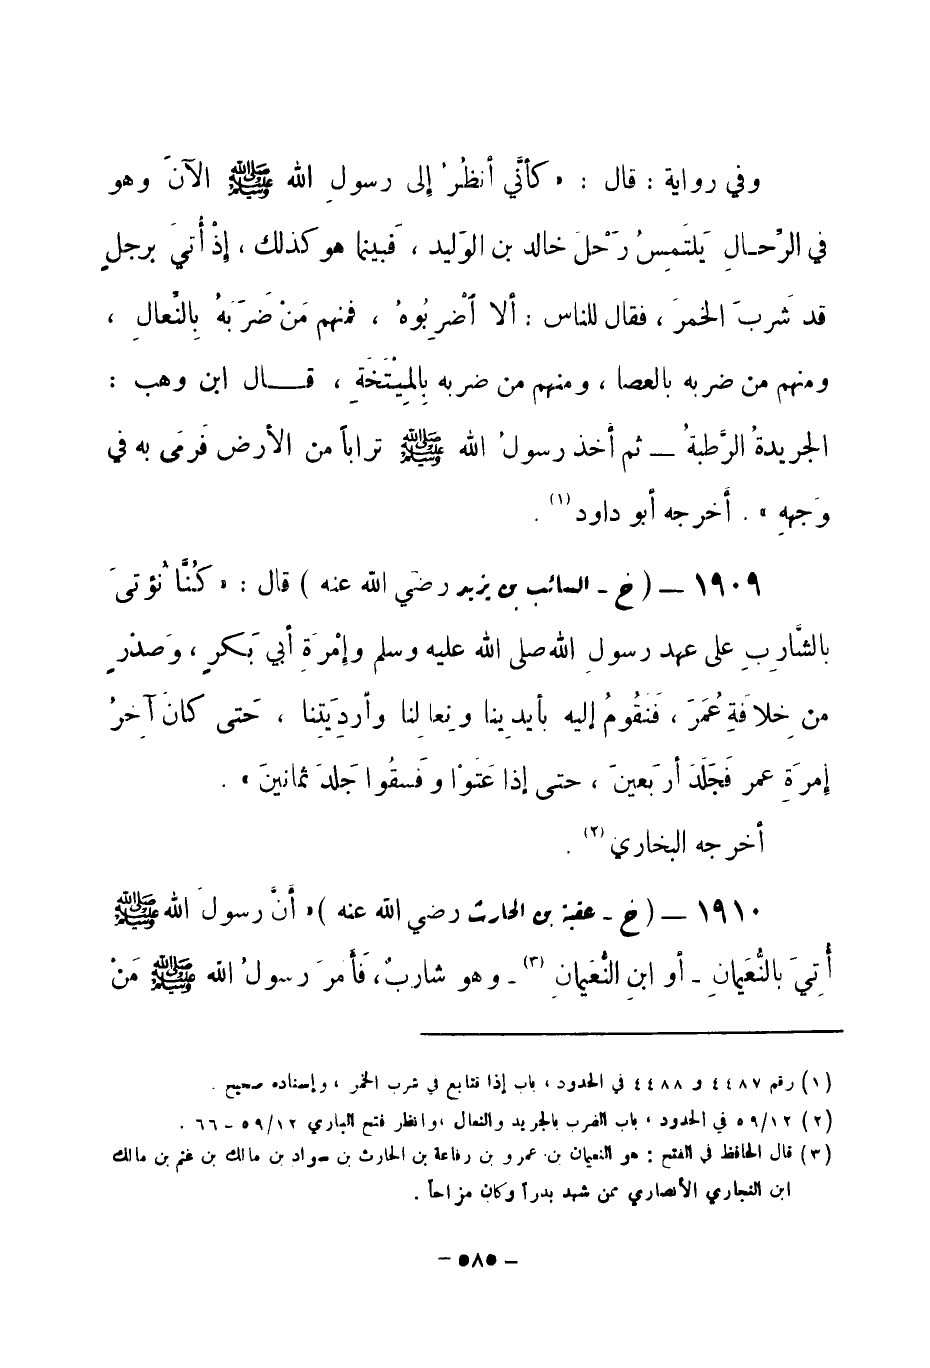 وفي رواية : قال : « كأنَّي أنظُرُ إلى رسولِ الله ﷺ الآنَ وهو
في الرِّحـالِ يَلتَمِسُ رَحْلَ خالد بن الوَليد ، فَبينما هو كذلك ، إذْ أُتيَ برجلٍ
قد شَرِبَ الخمرَ ، فقال للناس : ألا اضْرِبُوهُ ، فمنهم مَنْ ضَرَبَهُ بِالنِّعالِ ،
ومنهم من ضربه بالعصا ، ومنهم من ضربه بِالمِيْتَخَةِ ، قـــال ابن وهب :
الجريدةُ الرَّطبةُ ــ ثم أَخذ رسولُ الله ﷺ تراباً من الأرض فَرمَى به في
وَجهِهِ » . أخرجه أبو داود (١) .
١٩٠٩ ــ ( خ ـ السائب بن يزيد رضي الله عنه ) قال : « كُنَّا نُؤتى َ
بالشَّارِبِ على عهد رسولِ الله صلى الله عليه وسلم وإمْرَةِ أبي بَكرٍ ، وَصدْرٍ
من خِلافَةِ عُمَرَ ، فَنَقُومُ إليه بأيدينا ونِعالنا وأردِيَتِنا ، حَتى كانَ آخِرُ
إمرَةِ عمر فَجَلَدَ أربَعينَ ، حتى إذا عَتَوْا وفَسقُوا جَلدَ ثمانينَ » .
أخرجه البخاري (٢) .
١٩١٠ ــ ( خ ـ عقبة بن الحارث رضي الله عنه ) « أَنَّ رسولَ الله ﷺ
أُتِيَ بالنُّعَيمانِ ـ أو ابنِ النُّعَيمانِ (٣) ـ وهو شاربٌ، فَأَمرَ رسولُ الله ﷺ مَنْ
(١) رقم ٤٤٨٧ و ٤٤٨٨ في الحدود ، باب إذا تتابع في شرب الخمر ، وإسناده صحيح .
(٢) ٥٩/١٢ في الحدود ، باب الضرب بالجريد والنعال ، وانظر فتح الباري ٥٩/١٢ ـ ٦٦ .
(٣) قال الحافظ في الفتح : هو النعيمان بن عمرو بن رفاعة بن الحارث بن سواد بن مالك بن غنم بن مالك
ابن النجاري الأنصاري ممن شهد بدراً وكان مزاحاً .
ـ ٥٨٥ ـ